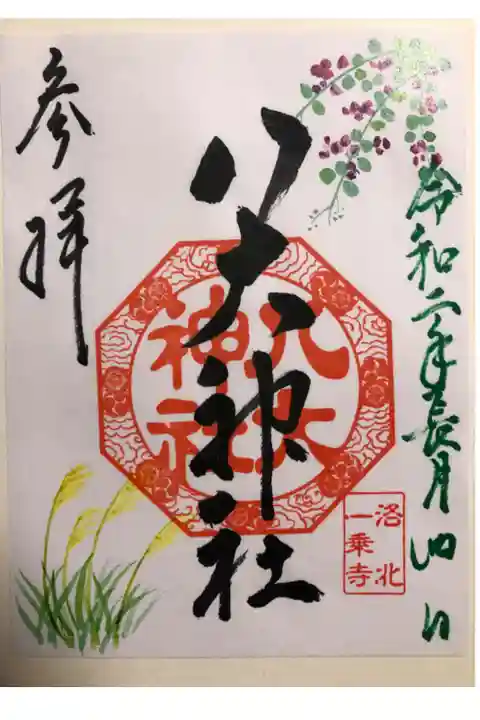 令和二年長月四日
八大神社
八大
神社
洛北
一乗寺
参拝